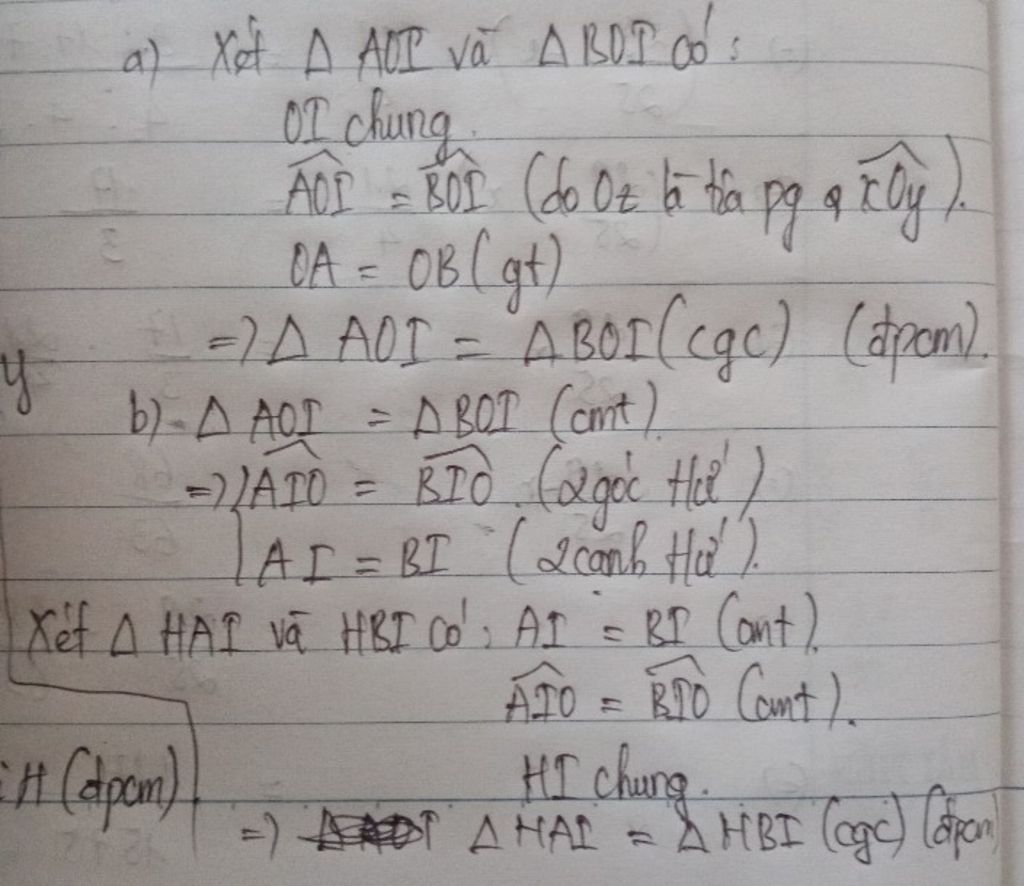 a) Xét Δ AOI và Δ BOI có:
OI chung.
AOI = BOI (do Oz là tia pg q xOy).
OA = OB (gt)
=> Δ AOI = Δ BOI (cgc) (đpcm).
y
b) Δ AOI = Δ BOI (cmt).
=> AIO = BIO (2 góc tư)
AI = BI (2 cạnh tư).
Xét Δ HAI và HBI có: AI = BI (cmt).
AIO = BIO (cmt).
HI chung.
H (đpcm)
=> Δ HAI = Δ HBI (cgc) (đpcm